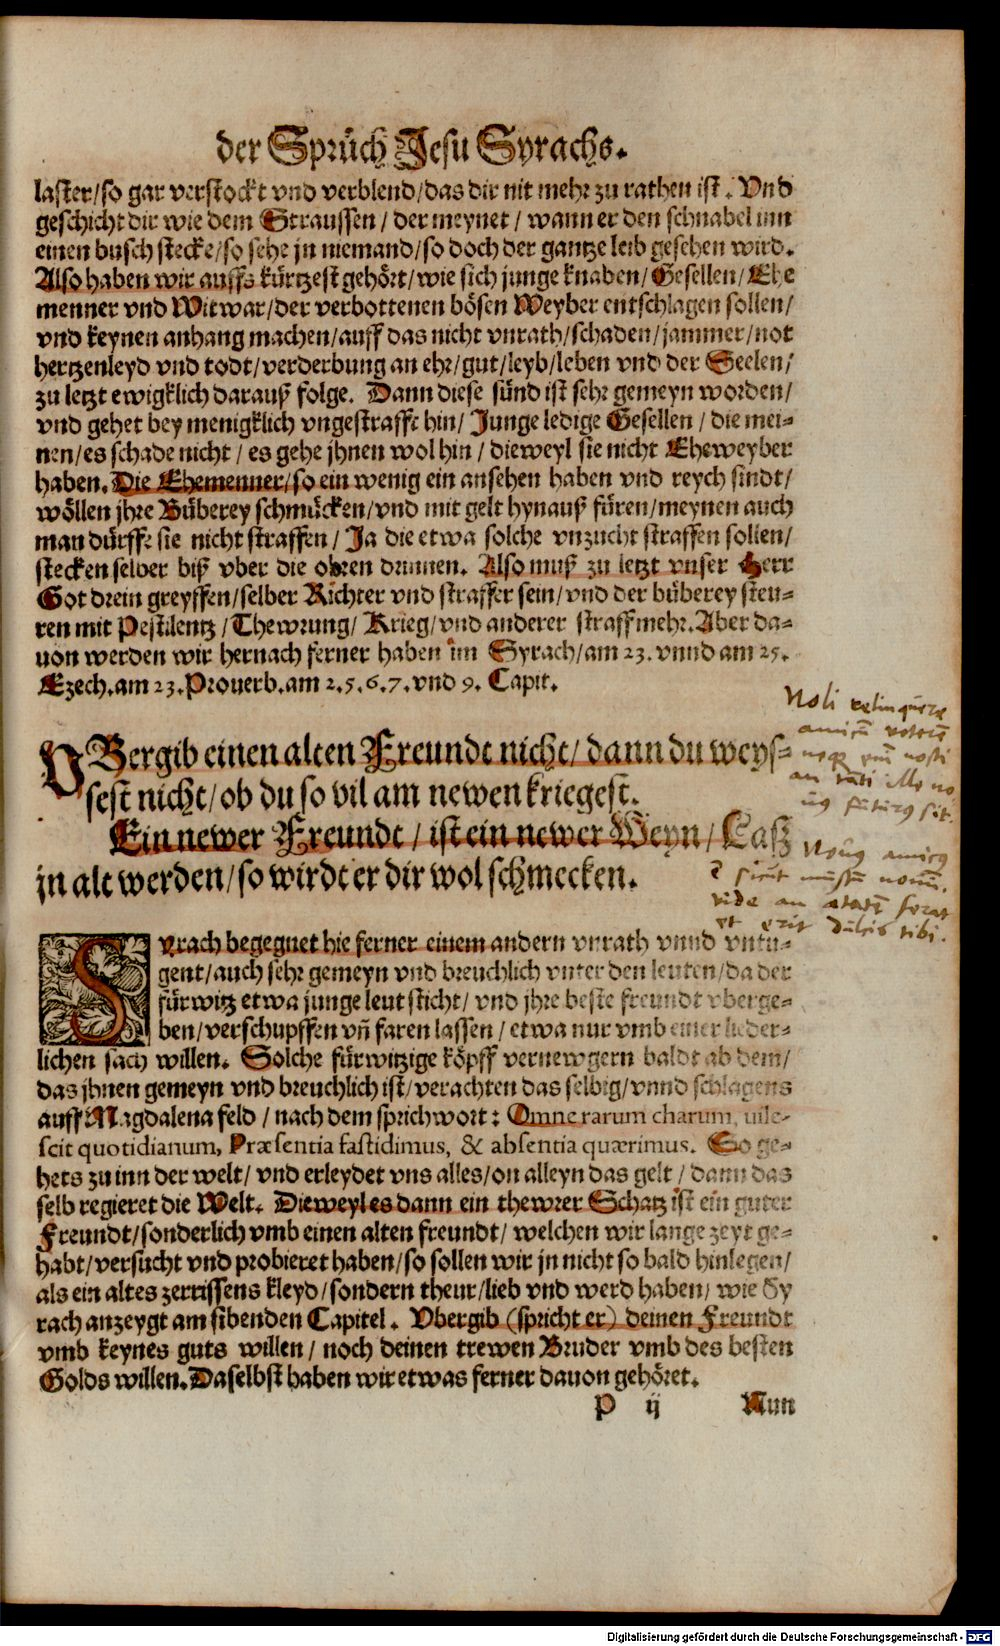 der Sprüch Jesu Syrachs.
laster/so gar verstockt vnd verblend/das dir nit mehr zu rathen ist. Vnd
geschicht dir wie dem Straussen / der meynet / wann er den schnabel inn
einen busch stecke/so sehe jn niemand/so doch der gantze leib gesehen wird.
Also haben wir auffs kürtzest gehört/wie sich junge knaben/Gesellen/Ehe
menner vnd Witwar/der verbottenen bösen Weyber entschlagen sollen/
vnd keynen anhang machen/auff das nicht vnrath/schaden/jammer/not
hertzenleyd vnd todt/verderbung an ehr/gut/leyb/leben vnd der Seelen/
zu letzt ewigklich darauß folge. Dann diese sünd ist sehr gemeyn worden/
vnd gehet bey menigklich vngestrafft hin/ Junge ledige Gesellen / die mei-
nen/es schade nicht / es gehe jhnen wol hin / dieweyl sie nicht Eheweyber
haben. Die Ehemenner/so ein wenig ein ansehen haben vnd reych sindt/
wöllen jhre Büberey schmücken/vnd mit gelt hynauß füren/meynen auch
man dürffe sie nicht straffen / Ja die etwa solche vnzucht straffen sollen/
stecken selber biß vber die ohren drinnen. Also muß zu letzt vnser Herr
Got drein greyffen/selber Richter vnd straffer sein/vnd der büberey steu-
ren mit Pestilentz / Thewrung/ Krieg/vnd anderer straff mehr. Aber da-
uon werden wir hernach ferner haben im Syrach/am 23. vnnd am 25.
Ezech. am 23. Prouerb. am 2. 5. 6. 7. vnd 9. Capit.
VBergib einen alten Freundt nicht/ dann du weys-
sest nicht/ob du so vil am newen kriegest.
Ein newer Freundt / ist ein newer Weyn/ Laß
jn alt werden/so wirdt er dir wol schmecken.
Noli relinquere
amicū veterē
neqȝ enī nosti
an tāti ille no
uꝰ futurꝰ sit.
Nouꝰ amicus
sicut mustū nouū.
vide an ætatē ferat
et erit dulcis tibi.
Syrach begegnet hie ferner einem andern vnrath vnnd vntu-
gent/auch sehr gemeyn vnd breuchlich vnter den leuten/da der
fürwitz etwa junge leut sticht/ vnd jhre beste freundt vberge-
ben/verschupffen vñ faren lassen / etwa nur vmb einer lieder-
lichen sach willen. Solche fürwitzige köpff vernewgern baldt ab dem/
das jhnen gemeyn vnd breuchlich ist/verachten das selbig/vnnd schlagens
auff Magdalena feld / nach dem sprichwort: Omne rarum charum, uile-
scit quotidianum, Præsentia fastidimus, & absentia quærimus. So ge-
hets zu inn der welt/ vnd erleydet vns alles/on alleyn das gelt / dann das
selb regieret die Welt. Dieweyl es dann ein thewrer Schatz ist ein guter
Freundt/sonderlich vmb einen alten freundt/ welchen wir lange zeyt ge-
habt/versucht vnd probieret haben/so sollen wir jn nicht so bald hinlegen/
als ein altes zerrissens kleyd/sondern theur/lieb vnd werd haben/ wie Sy
rach anzeygt am sibenden Capitel. Vbergib (spricht er) deinen Freundt
vmb keynes guts willen / noch deinen trewen Bruder vmb des besten
Golds willen. Daselbst haben wir etwas ferner dauon gehöret.
P ij Nun
Digitalisierung gefördert durch die Deutsche Forschungsgemeinschaft - DFG